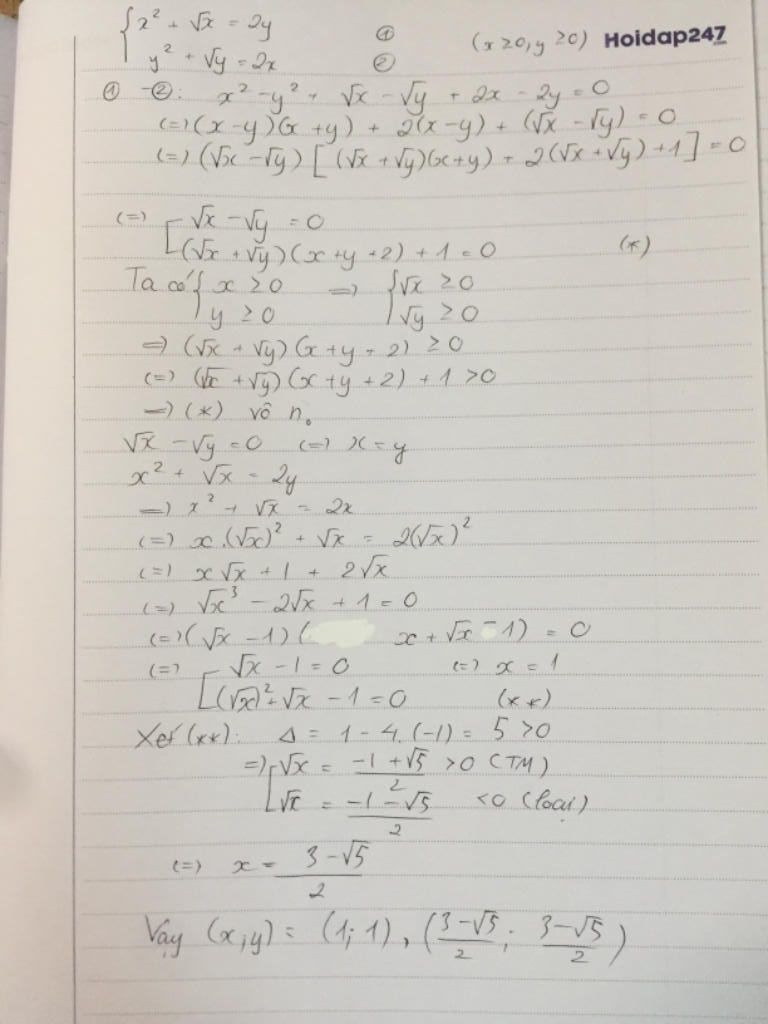 { x² + √x = 2y ①
y² + √y = 2x ② (x ≥0, y ≥0) Hoidap247
① - ②: x² - y² + √x - √y + 2x - 2y = 0
(=) (x - y)(x + y) + 2(x - y) + (√x - √y) = 0
(=) (√x - √y) [ (√x + √y)(x + y) + 2(√x + √y) + 1 ] = 0
(=) [ √x - √y = 0
(√x + √y)(x + y + 2) + 1 = 0 (*)
Ta có { x ≥ 0 => { √x ≥ 0
y ≥ 0 √y ≥ 0
=> (√x + √y)(x + y + 2) ≥ 0
(=) (√x + √y)(x + y + 2) + 1 > 0
=> (*) vô n₀
√x - √y = 0 (=) x = y
x² + √x = 2y
=> x² + √x = 2x
(=) x.(√x)² + √x = 2(√x)²
(=) x√x + 1 + 2√x
(=) √x³ - 2√x + 1 = 0
(=) (√x - 1)( x + √x - 1) = 0
(=) [ √x - 1 = 0 (=) x = 1
(√x)² + √x - 1 = 0 (**)
Xét (**): Δ = 1 - 4.(-1) = 5 > 0
=> [ √x = (-1 + √5)/2 > 0 (TM)
√x = (-1 - √5)/2 < 0 (loại)
(=) x = (3 - √5)/2
Vậy (x; y) = (1; 1), ((3 - √5)/2 ; (3 - √5)/2)